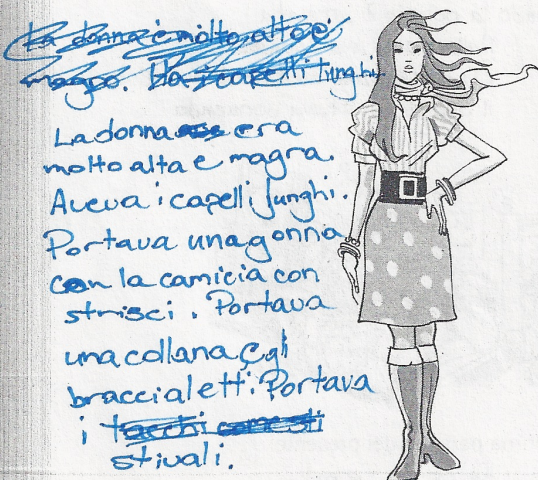 La donna è molto alto e
magro. Ha i capelli lunghi.
La donna era
molto alta e magra.
Aveva i capelli lunghi.
Portava una gonna
con la camicia con
strisci. Portava
una collana e gli
braccialetti. Portava
i tacchi
stivali.